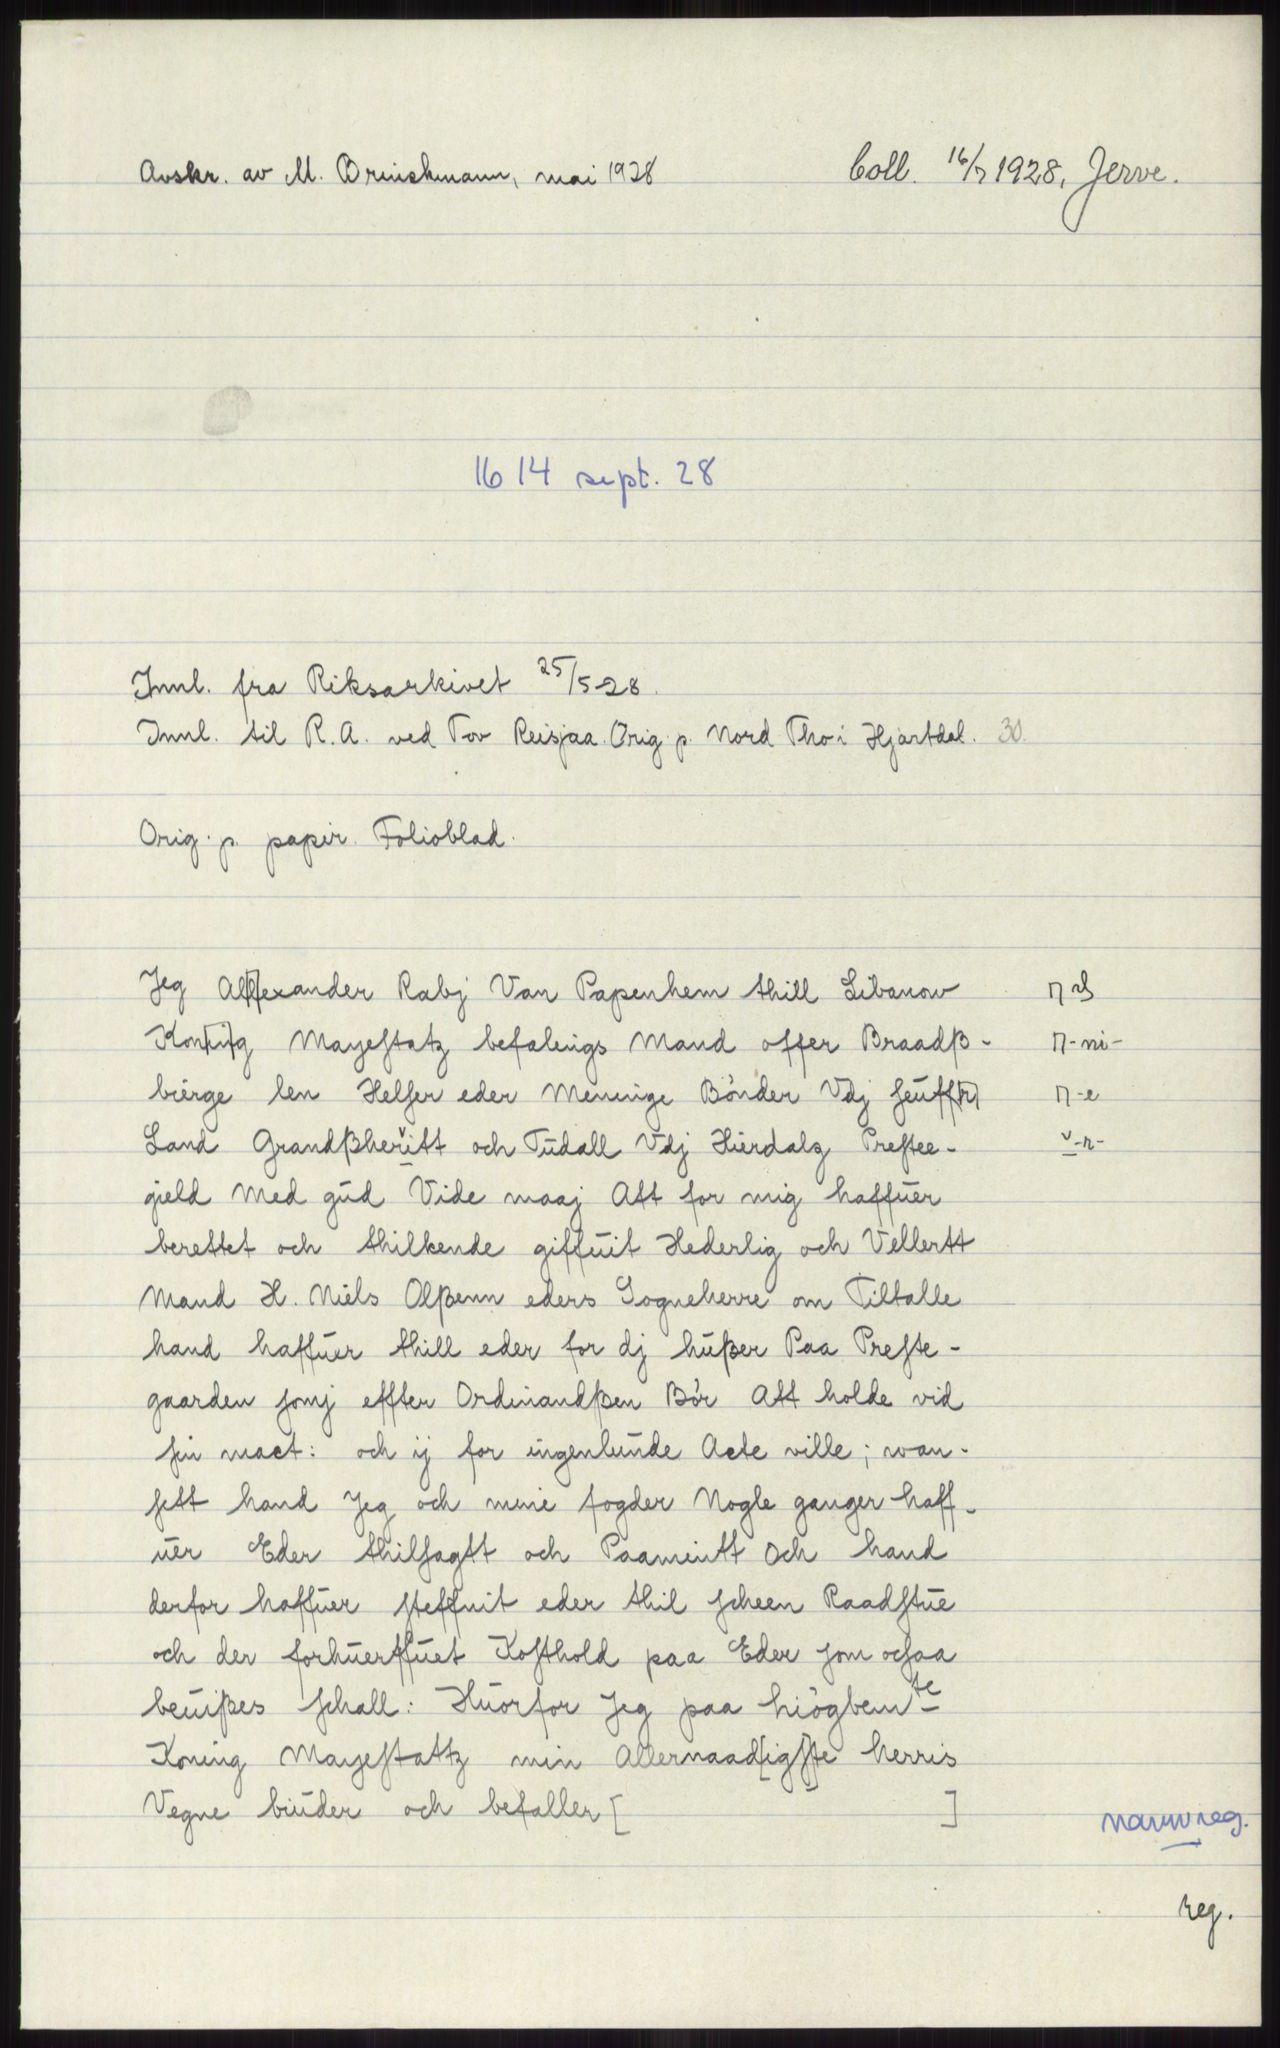 Avskr. av M. Brinchmann, mai 1928
Coll. 16/7 1928, Jerve.
1614 sept. 28
Innl. fra Riksarkivet 25/5-28.
Innl. til R.A. ved Tov Reisjaa. Orig. p. Nord Tho i Hjartdal. 30.
Orig. p. papir. Folioblad.
Jeg Al[l]exander Rabj Van Papenhem thill Libanow
Kon[ni]g Mayestatz befalings Mand offer Braadß-
bierge len Helser eder Meninge Bönder Vdj seuff[e]
Land Grandßherřitt och Tudall Vdj Hierdalz Prestee-
gield Med gud Vide maaj Att for mig haffuer
berettet och thilkende giffuit Hederlig och Vellertt
Mand H. Niels Olßenn eders Sogneherre om Tiltalle
hand haffuer thill eder for dj hußer Paa Preste-
gaarden somj effter Ordinandßen Bör Att holde vid
sin mact: och ij for ingenlunde Acte ville; wan-
sett hand Jeg och mine fogder Nogle ganger haff-
uer Eder thilsagtt och Paamintt Och hand
derfor haffuer steffnit eder thil scheen Raadstue
och der forhuerffuet Kosthold paa Eder som ochaa
beuißes schall: Huorfor Jeg paa hiögbemte
Koning Mayestattz min Allernaad[igs]te herris
Vegne biuder och befaller [ ]
navnreg.
reg.